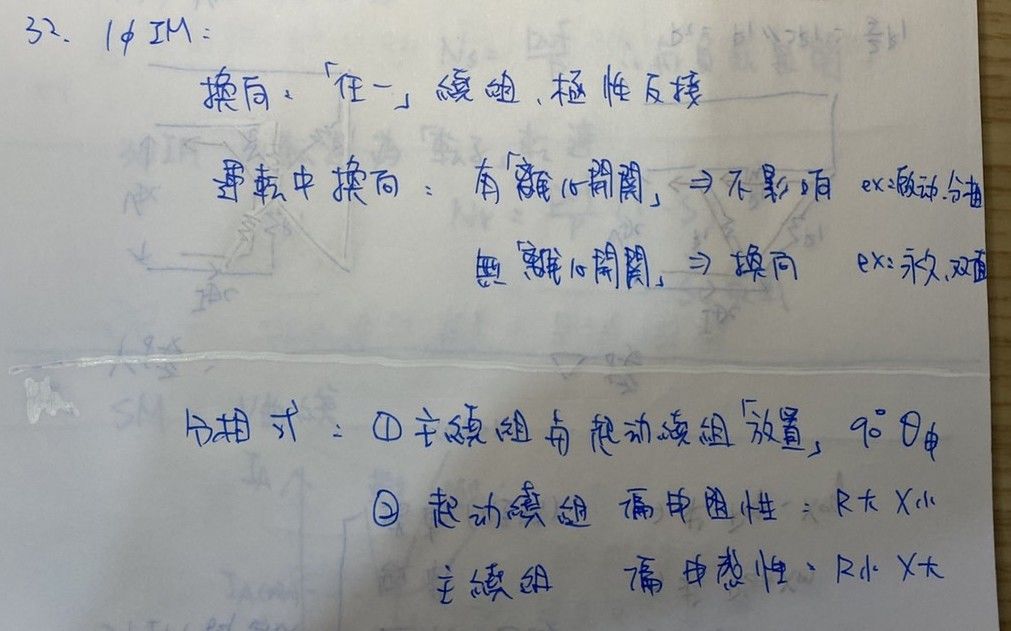 32. 1φ IM:
換向:「任一」繞組、極性反接
運転中換向: 有「離心開関」⇒ 不影响 ex:啟动.分相
無「離心開関」⇒ 換向 ex:永久.双值
分相式: ① 主繞組与起动繞組「放置」90° θ电
② 起动繞組 偏电阻性: R大 X小
主繞組 偏电感性: R小 X大